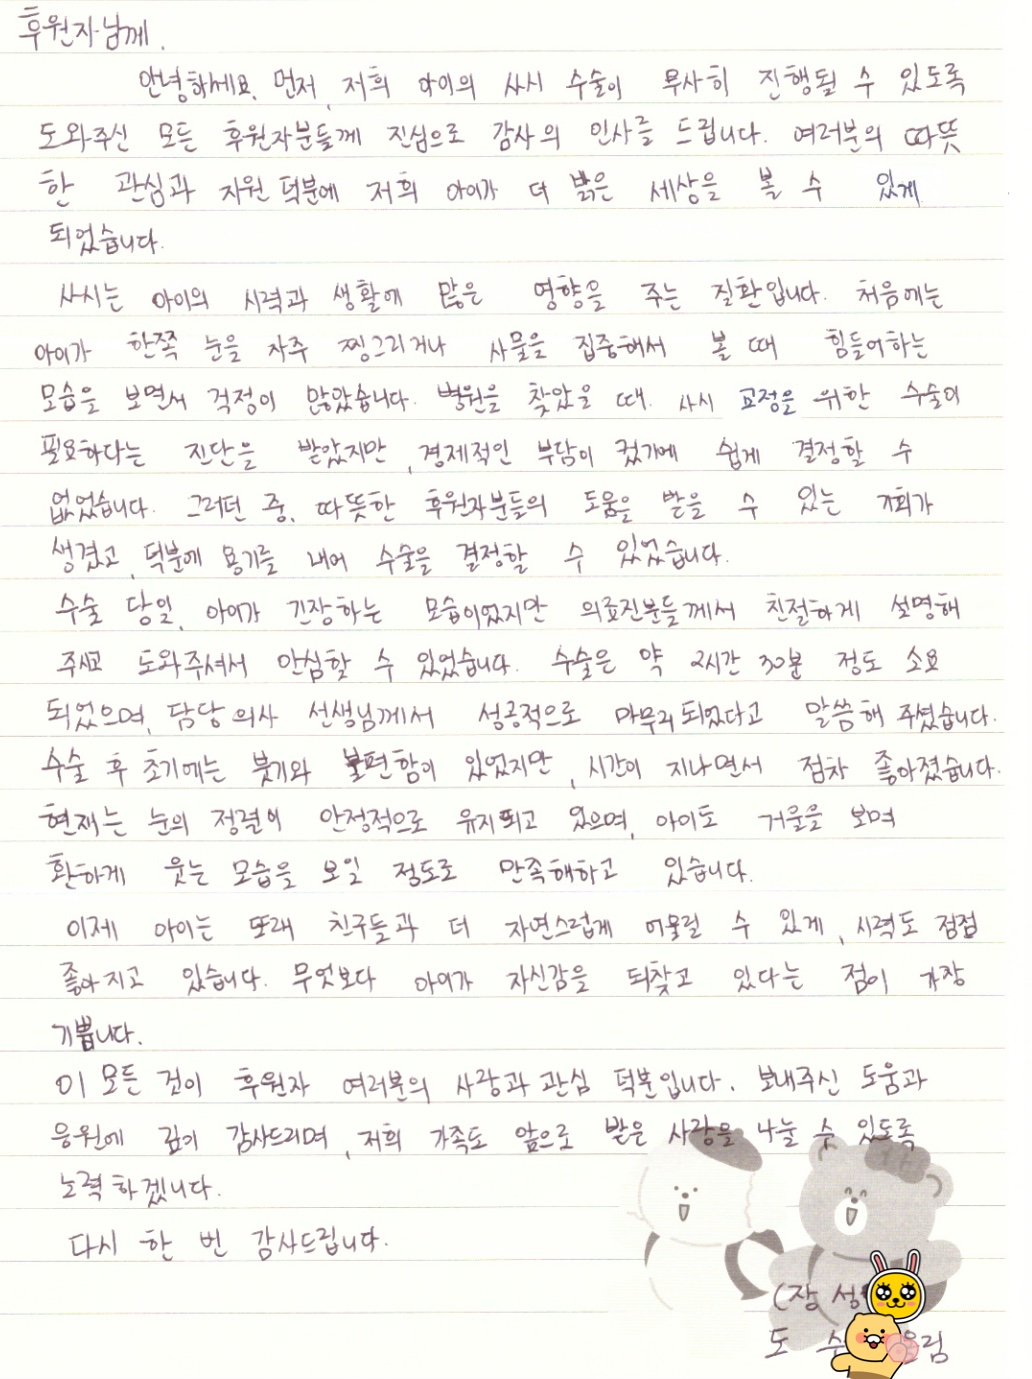 후원자님께.
안녕하세요. 먼저, 저희 아이의 사시 수술이 무사히 진행될 수 있도록
도와주신 모든 후원자분들께 진심으로 감사의 인사를 드립니다. 여러분의 따뜻
한 관심과 지원 덕분에 저희 아이가 더 밝은 세상을 볼 수 있게
되었습니다.
사시는 아이의 시력과 생활에 많은 영향을 주는 질환입니다. 처음에는
아이가 한쪽 눈을 자주 찡그리거나 사물을 집중해서 볼 때 힘들어하는
모습을 보면서 걱정이 많았습니다. 병원을 찾았을 때. 사시 교정을 위한 수술이
필요하다는 진단을 받았지만, 경제적인 부담이 컸기에 쉽게 결정할 수
없었습니다. 그러던 중, 따뜻한 후원자분들의 도움을 받을 수 있는 기회가
생겼고, 덕분에 용기를 내어 수술을 결정할 수 있었습니다.
수술 당일, 아이가 긴장하는 모습이었지만 의료진분들께서 친절하게 설명해
주시고 도와주셔서 안심할 수 있었습니다. 수술은 약 2시간 30분 정도 소요
되었으며, 담당 의사 선생님께서 성공적으로 마무리 되었다고 말씀해 주셨습니다.
수술 후 초기에는 붓기와 불편함이 있었지만, 시간이 지나면서 점차 좋아졌습니다.
현재는 눈의 정렬이 안정적으로 유지되고 있으며, 아이도 거울을 보며
환하게 웃는 모습을 보일 정도로 만족해하고 있습니다.
이제 아이는 또래 친구들과 더 자연스럽게 어울릴 수 있게, 시력도 점점
좋아지고 있습니다. 무엇보다 아이가 자신감을 되찾고 있다는 점이 가장
기쁩니다.
이 모든 것이 후원자 여러분의 사랑과 관심 덕분입니다. 보내주신 도움과
응원에 깊이 감사드리며, 저희 가족도 앞으로 받은 사랑을 나눌 수 있도록
노력하겠니다.
다시 한 번 감사드립니다.
(장 성
도 수 올림